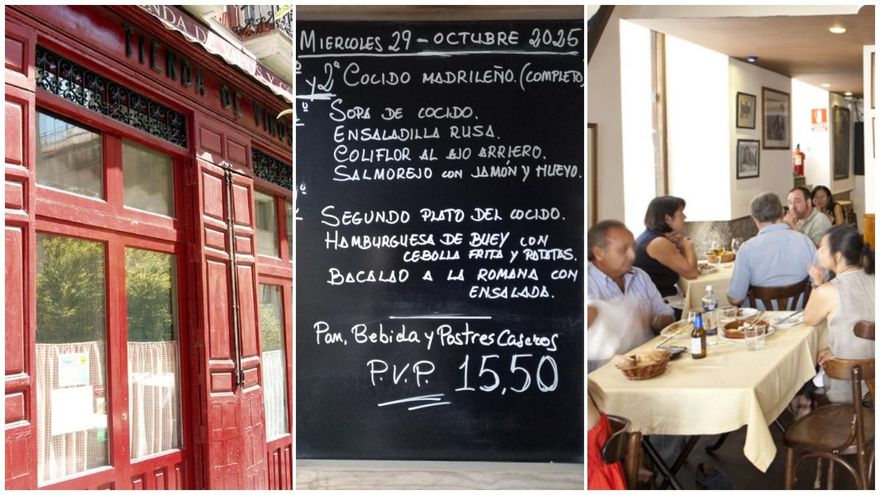 TIENDA DE VINOS
MIERCOLES 29-OCTUBRE 2025
Y 2º COCIDO MADRILEÑO. (COMPLETO)
SOPA DE COCIDO.
ENSALADILLA RUSA.
COLIFLOR AL AJO ARRIERO.
SALMOREJO CON JAMÓN Y HUEVO.
SEGUNDO PLATO DEL COCIDO.
HAMBURGUESA DE BUEY CON
CEBOLLA FRITA Y PATATAS.
BACALAO A LA ROMANA CON
ENSALADA.
Pan, Bebida y Postres Caseros
P.V.P. 15,50